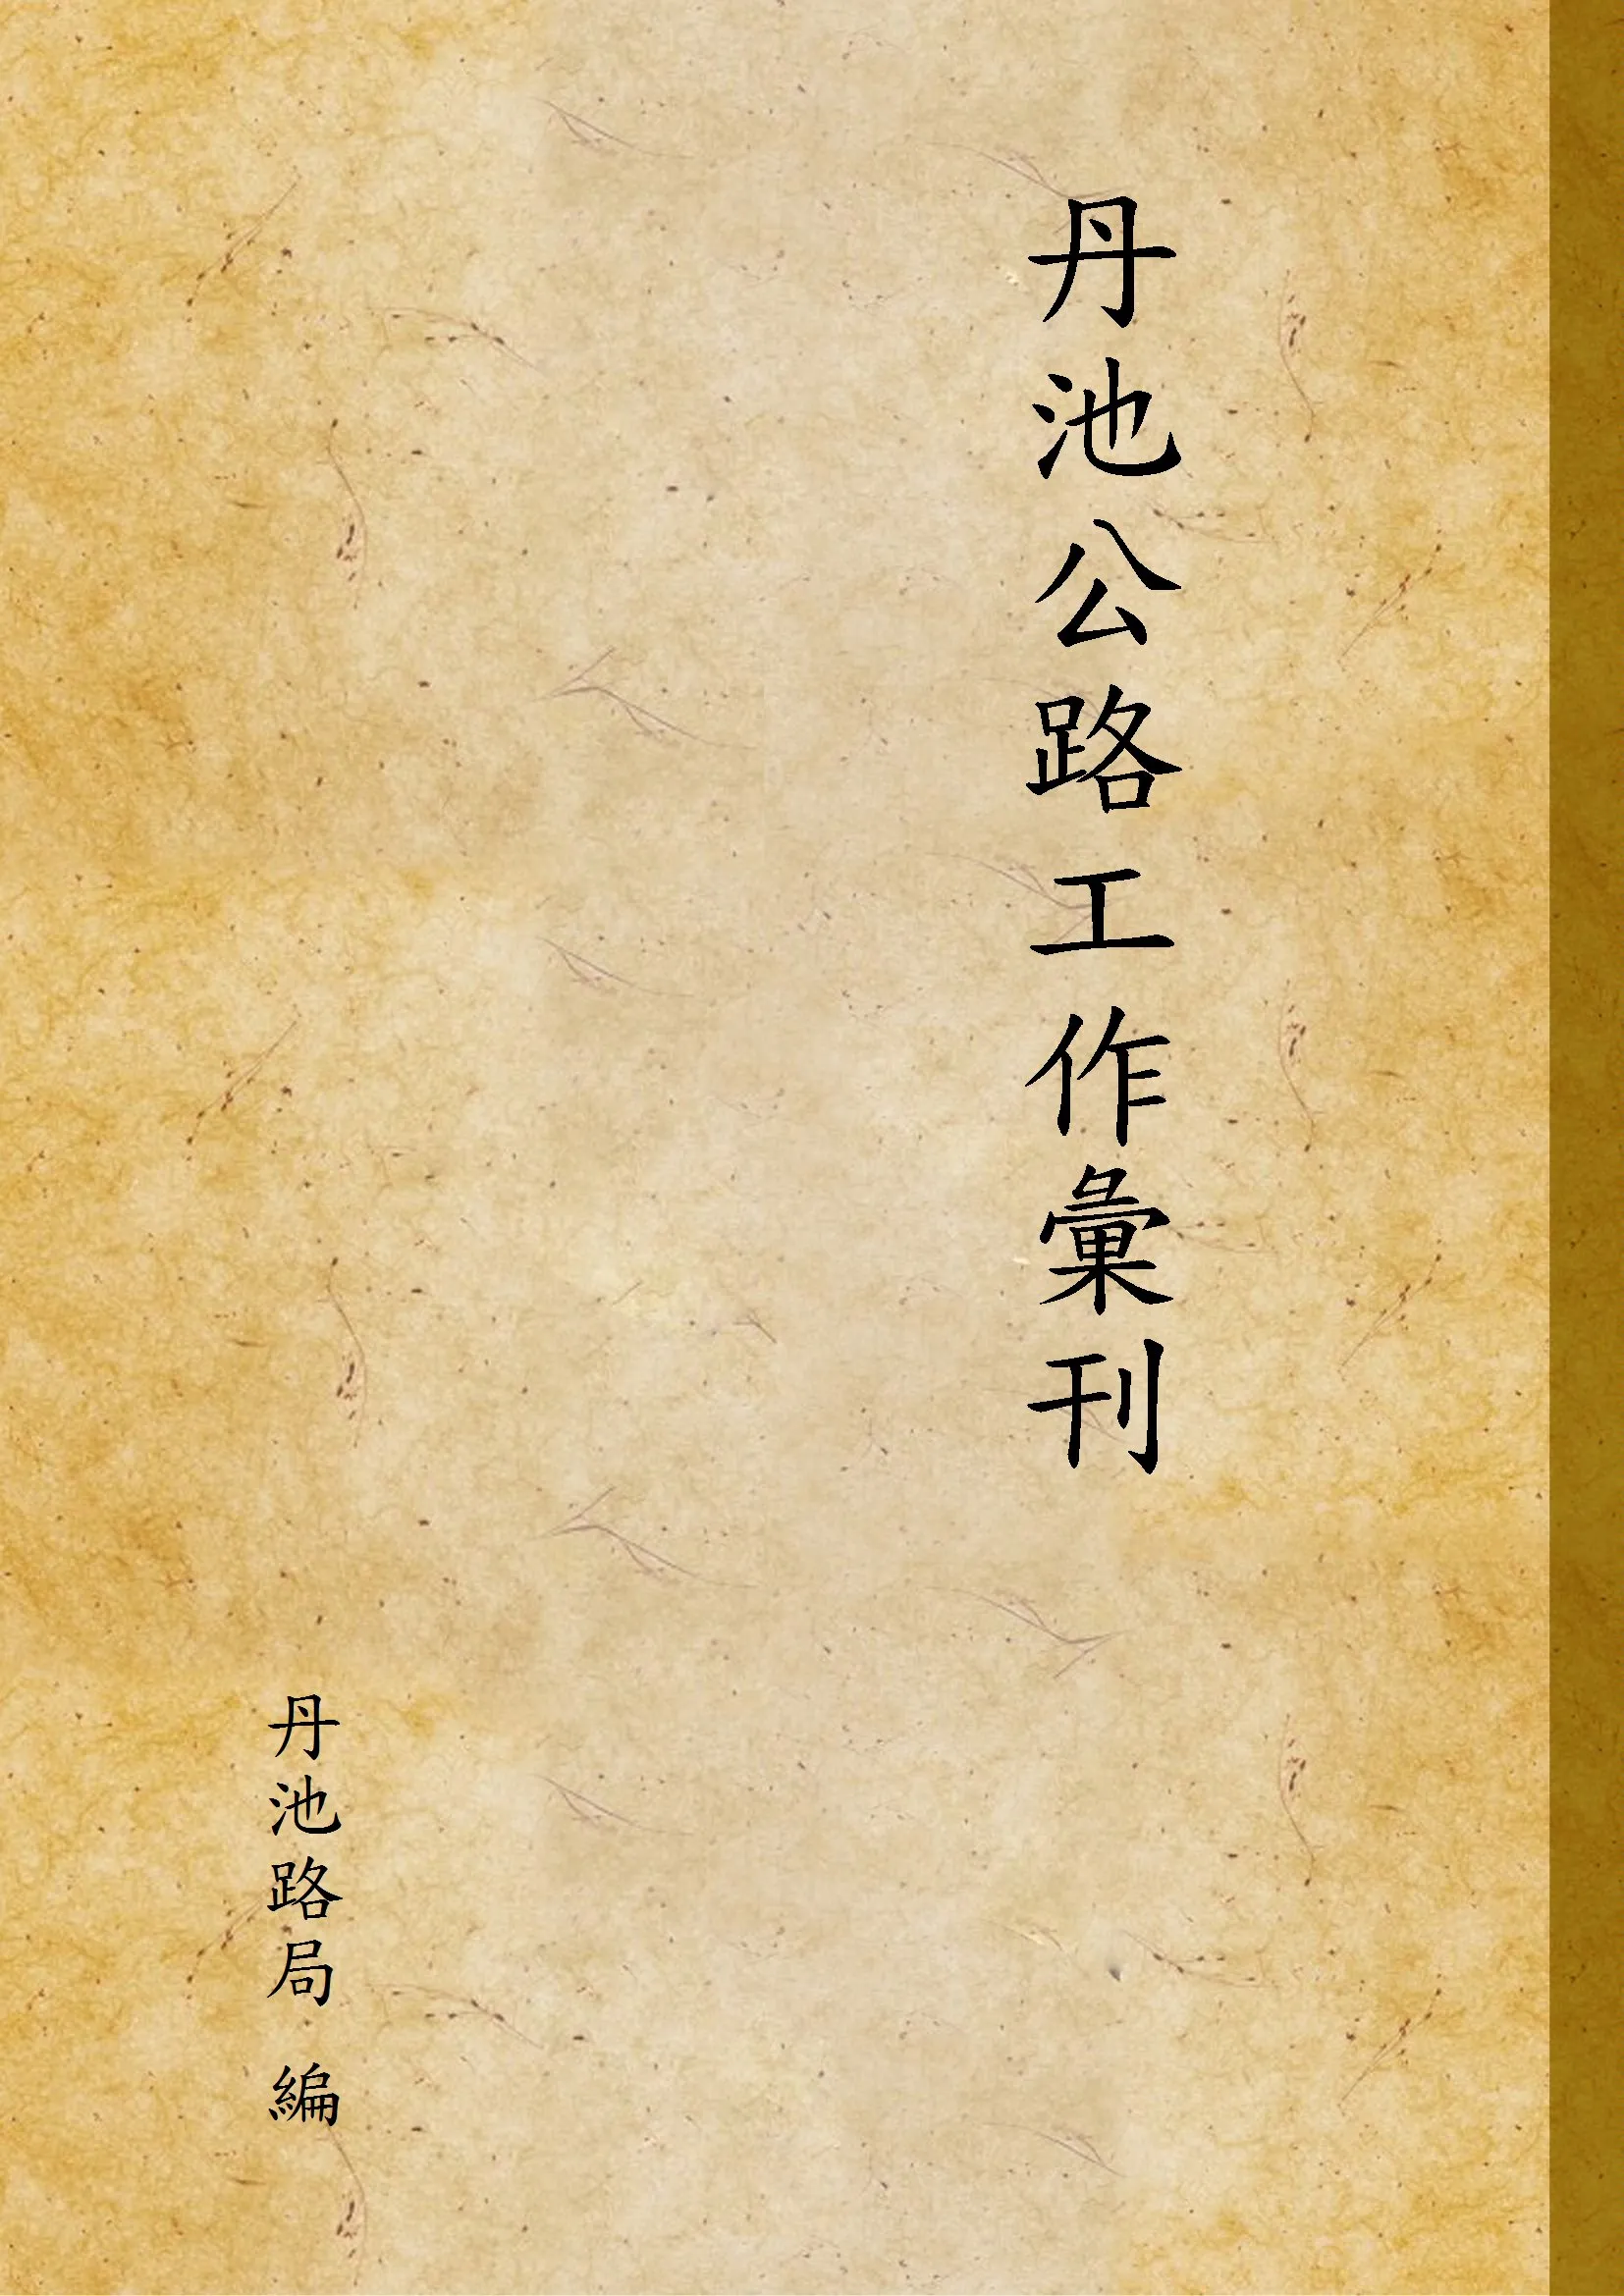 丹池公路工作彙刊
丹池路局 編